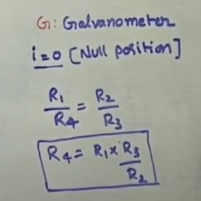 G: Galvanometer
i=0 [Null position]
R₁/R₄ = R₂/R₃
R₄ = R₁ × R₃/R₂